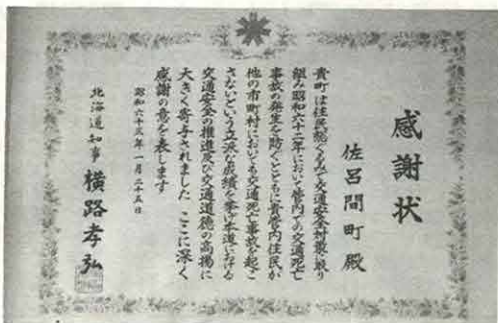 感謝状
佐呂間町殿
貴町は住民総ぐるみで交通安全対策に取り
組み昭和六十二年において管内での交通死亡
事故の発生を防ぐとともに貴管内住民が
他の市町村においても交通死亡事故を起こ
さないという立派な成績を挙げ本道における
交通安全の推進及び交通道徳の高揚に
大きく寄与されました ここに深く
感謝の意を表します
昭和六十三年一月二十五日
北海道知事 横路孝弘